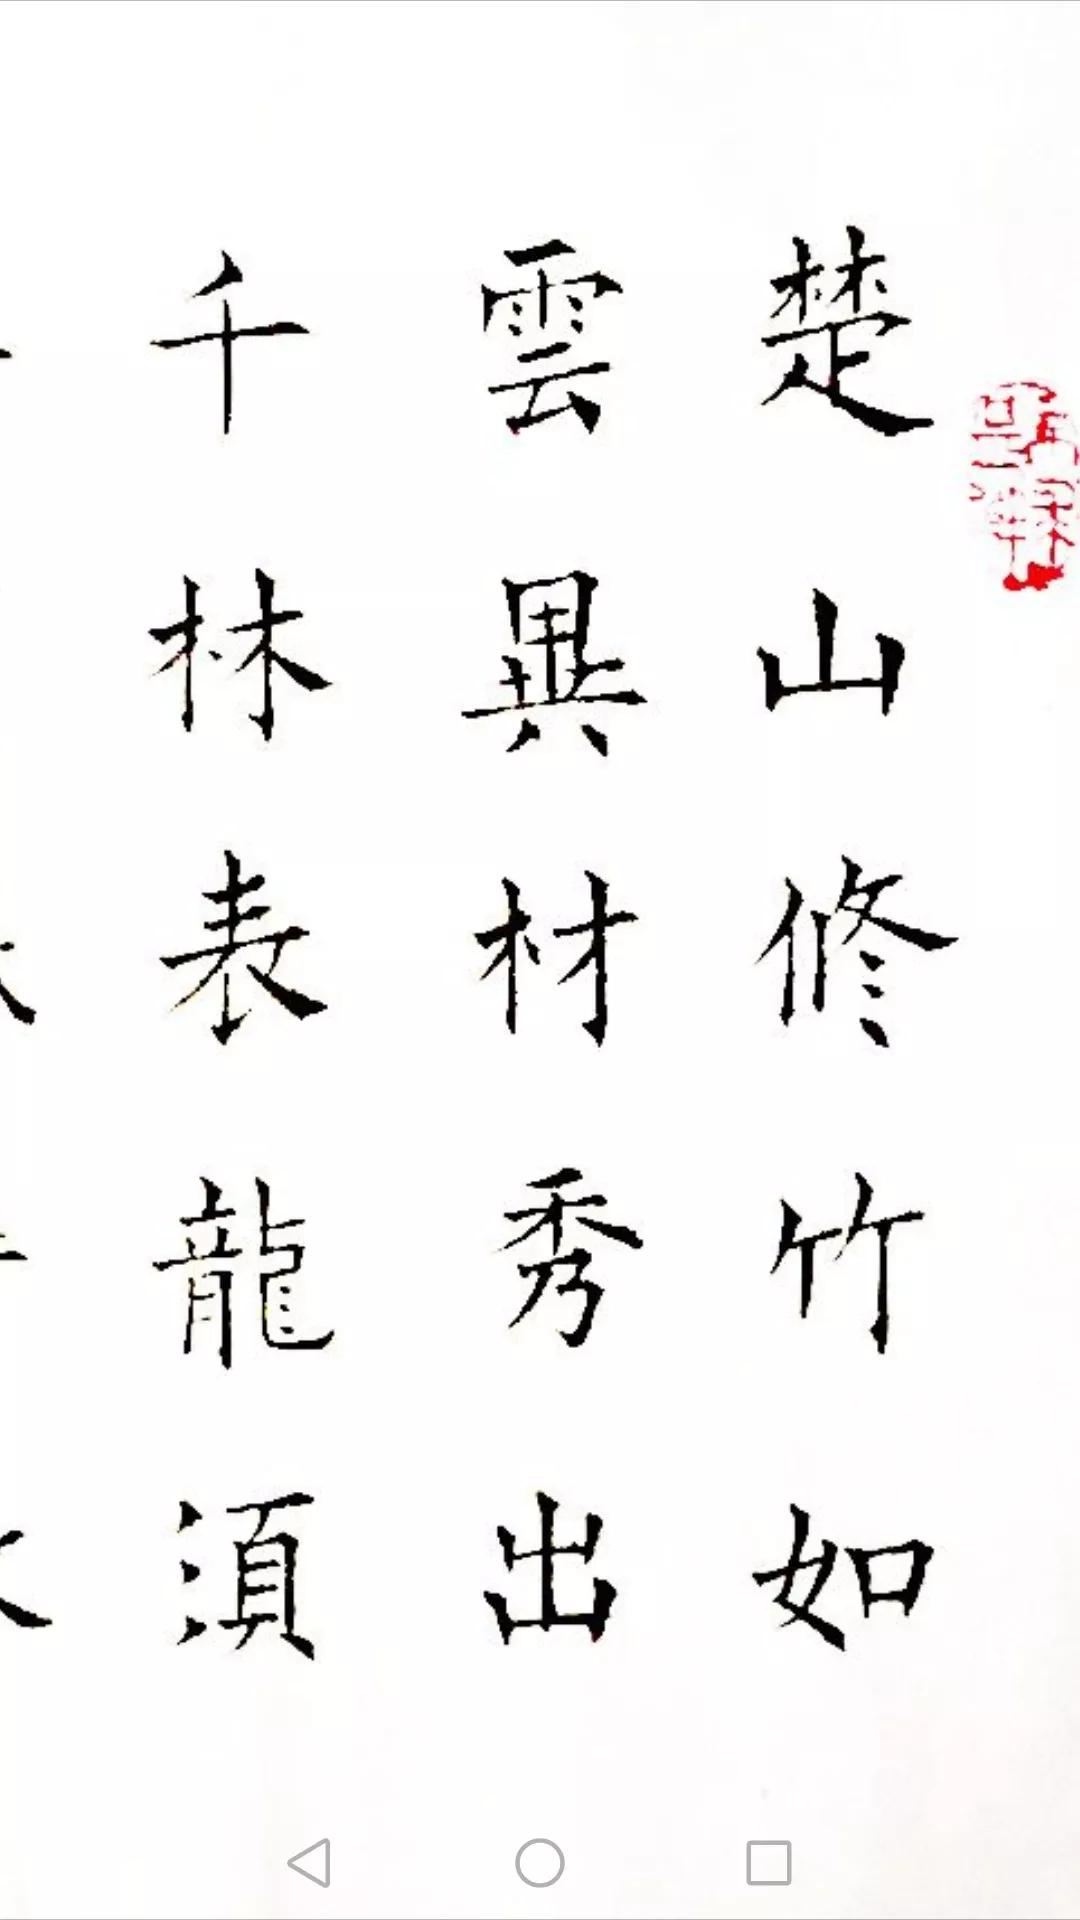 楚山修竹如
雲異材秀出
千林表龍須